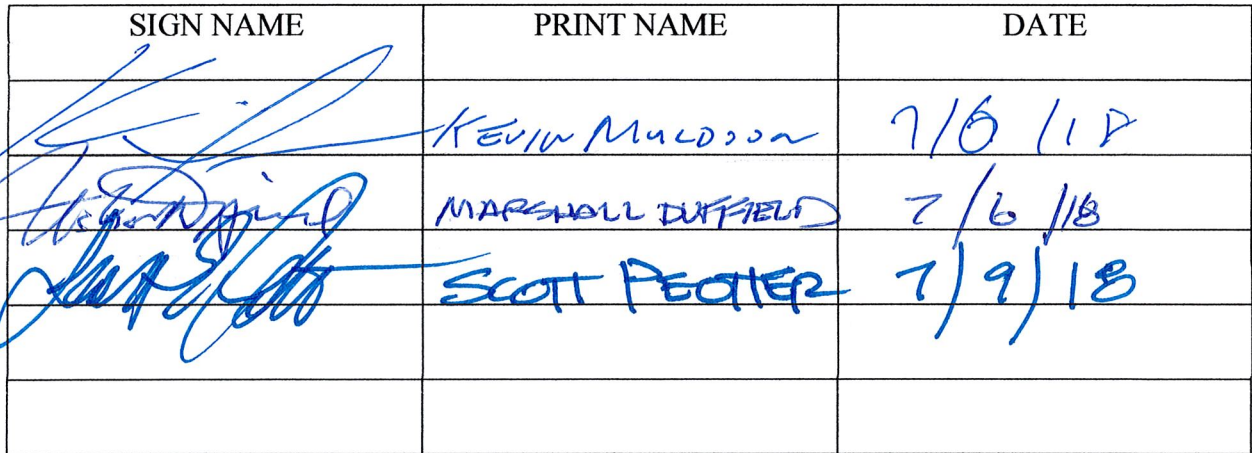 SIGN NAME PRINT NAME DATE
KEVIN MULDOON 7/6/18
MARSHALL DUFFIELD 7/6/18
SCOTT PEOTTER 7/9/18